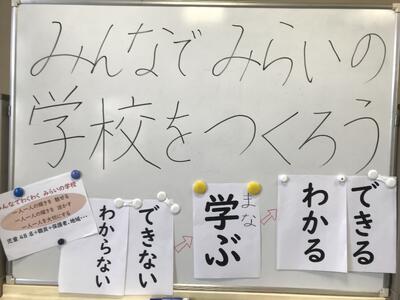 みんなで みらいの
学校をつくろう
みんなでわくわく みらいの学校
一人一人の輝きを 魅せる
一人一人の輝きを 活かす
一人一人を大切にする
児童48名+職員+保護者、地域・・・
できない
わからない
まな
学ぶ
できる
わかる